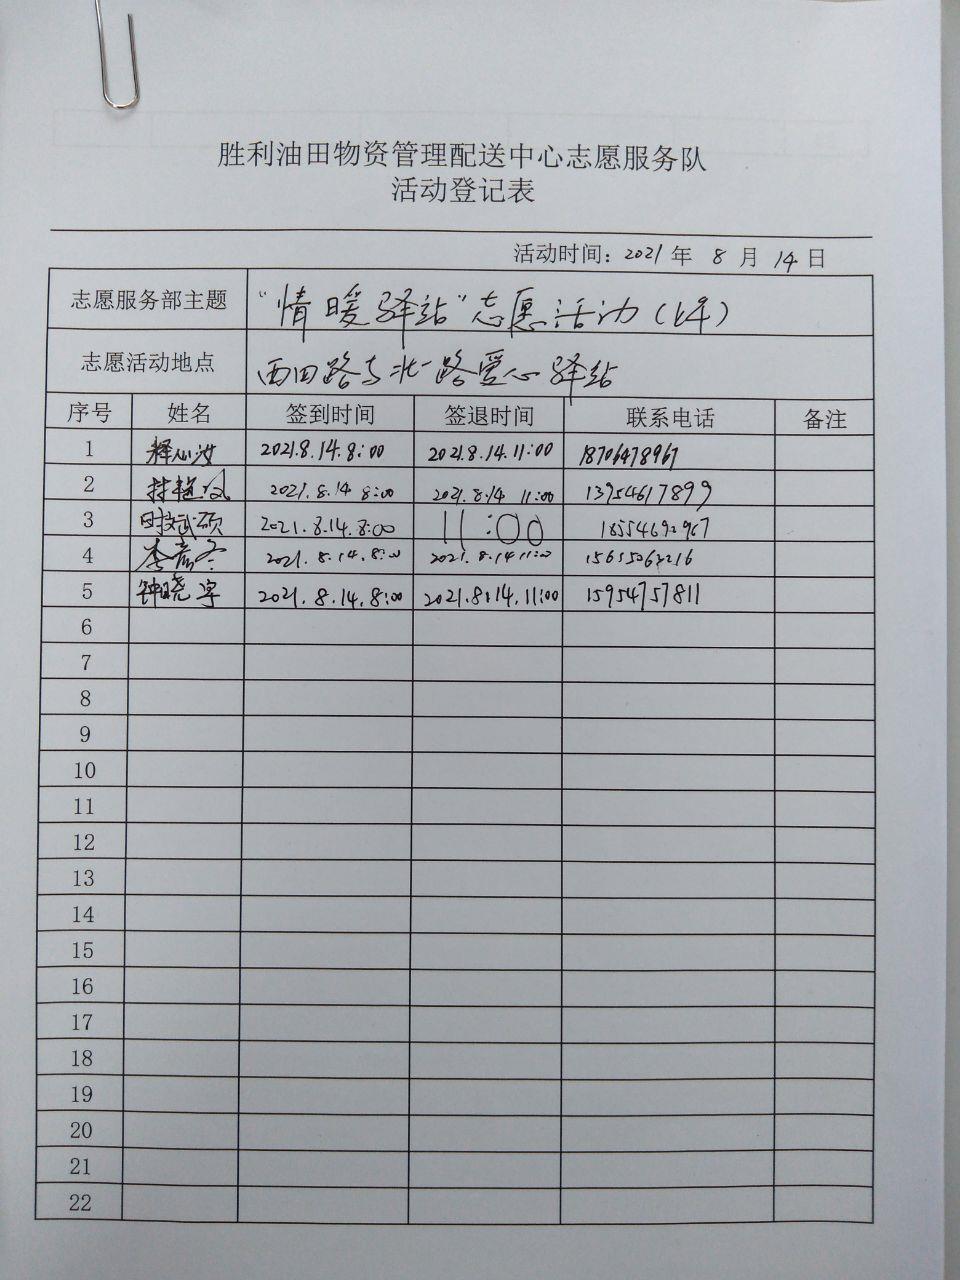 胜利油田物资管理配送中心志愿服务队
活动登记表
活动时间：2021 年 8 月 14 日
志愿服务部主题 "情暖驿站"志愿活动(上午)
志愿活动地点 西四路与北一路爱心驿站
序号 姓名 签到时间 签退时间 联系电话 备注
1 2021.8.14.8:00 2021.8.14.11:00 18706478967
2 2021.8.14 8:00 2021.8.14 11:00 13954617899
3 2021.8.14.8:00 11:00
4 李彦冬 2021.8.14.8:00 2021.8.14 11:00
5 钟晓宇 2021.8.14.8:00 2021.8.14.11:00 15954757811
6
7
8
9
10
11
12
13
14
15
16
17
18
19
20
21
22